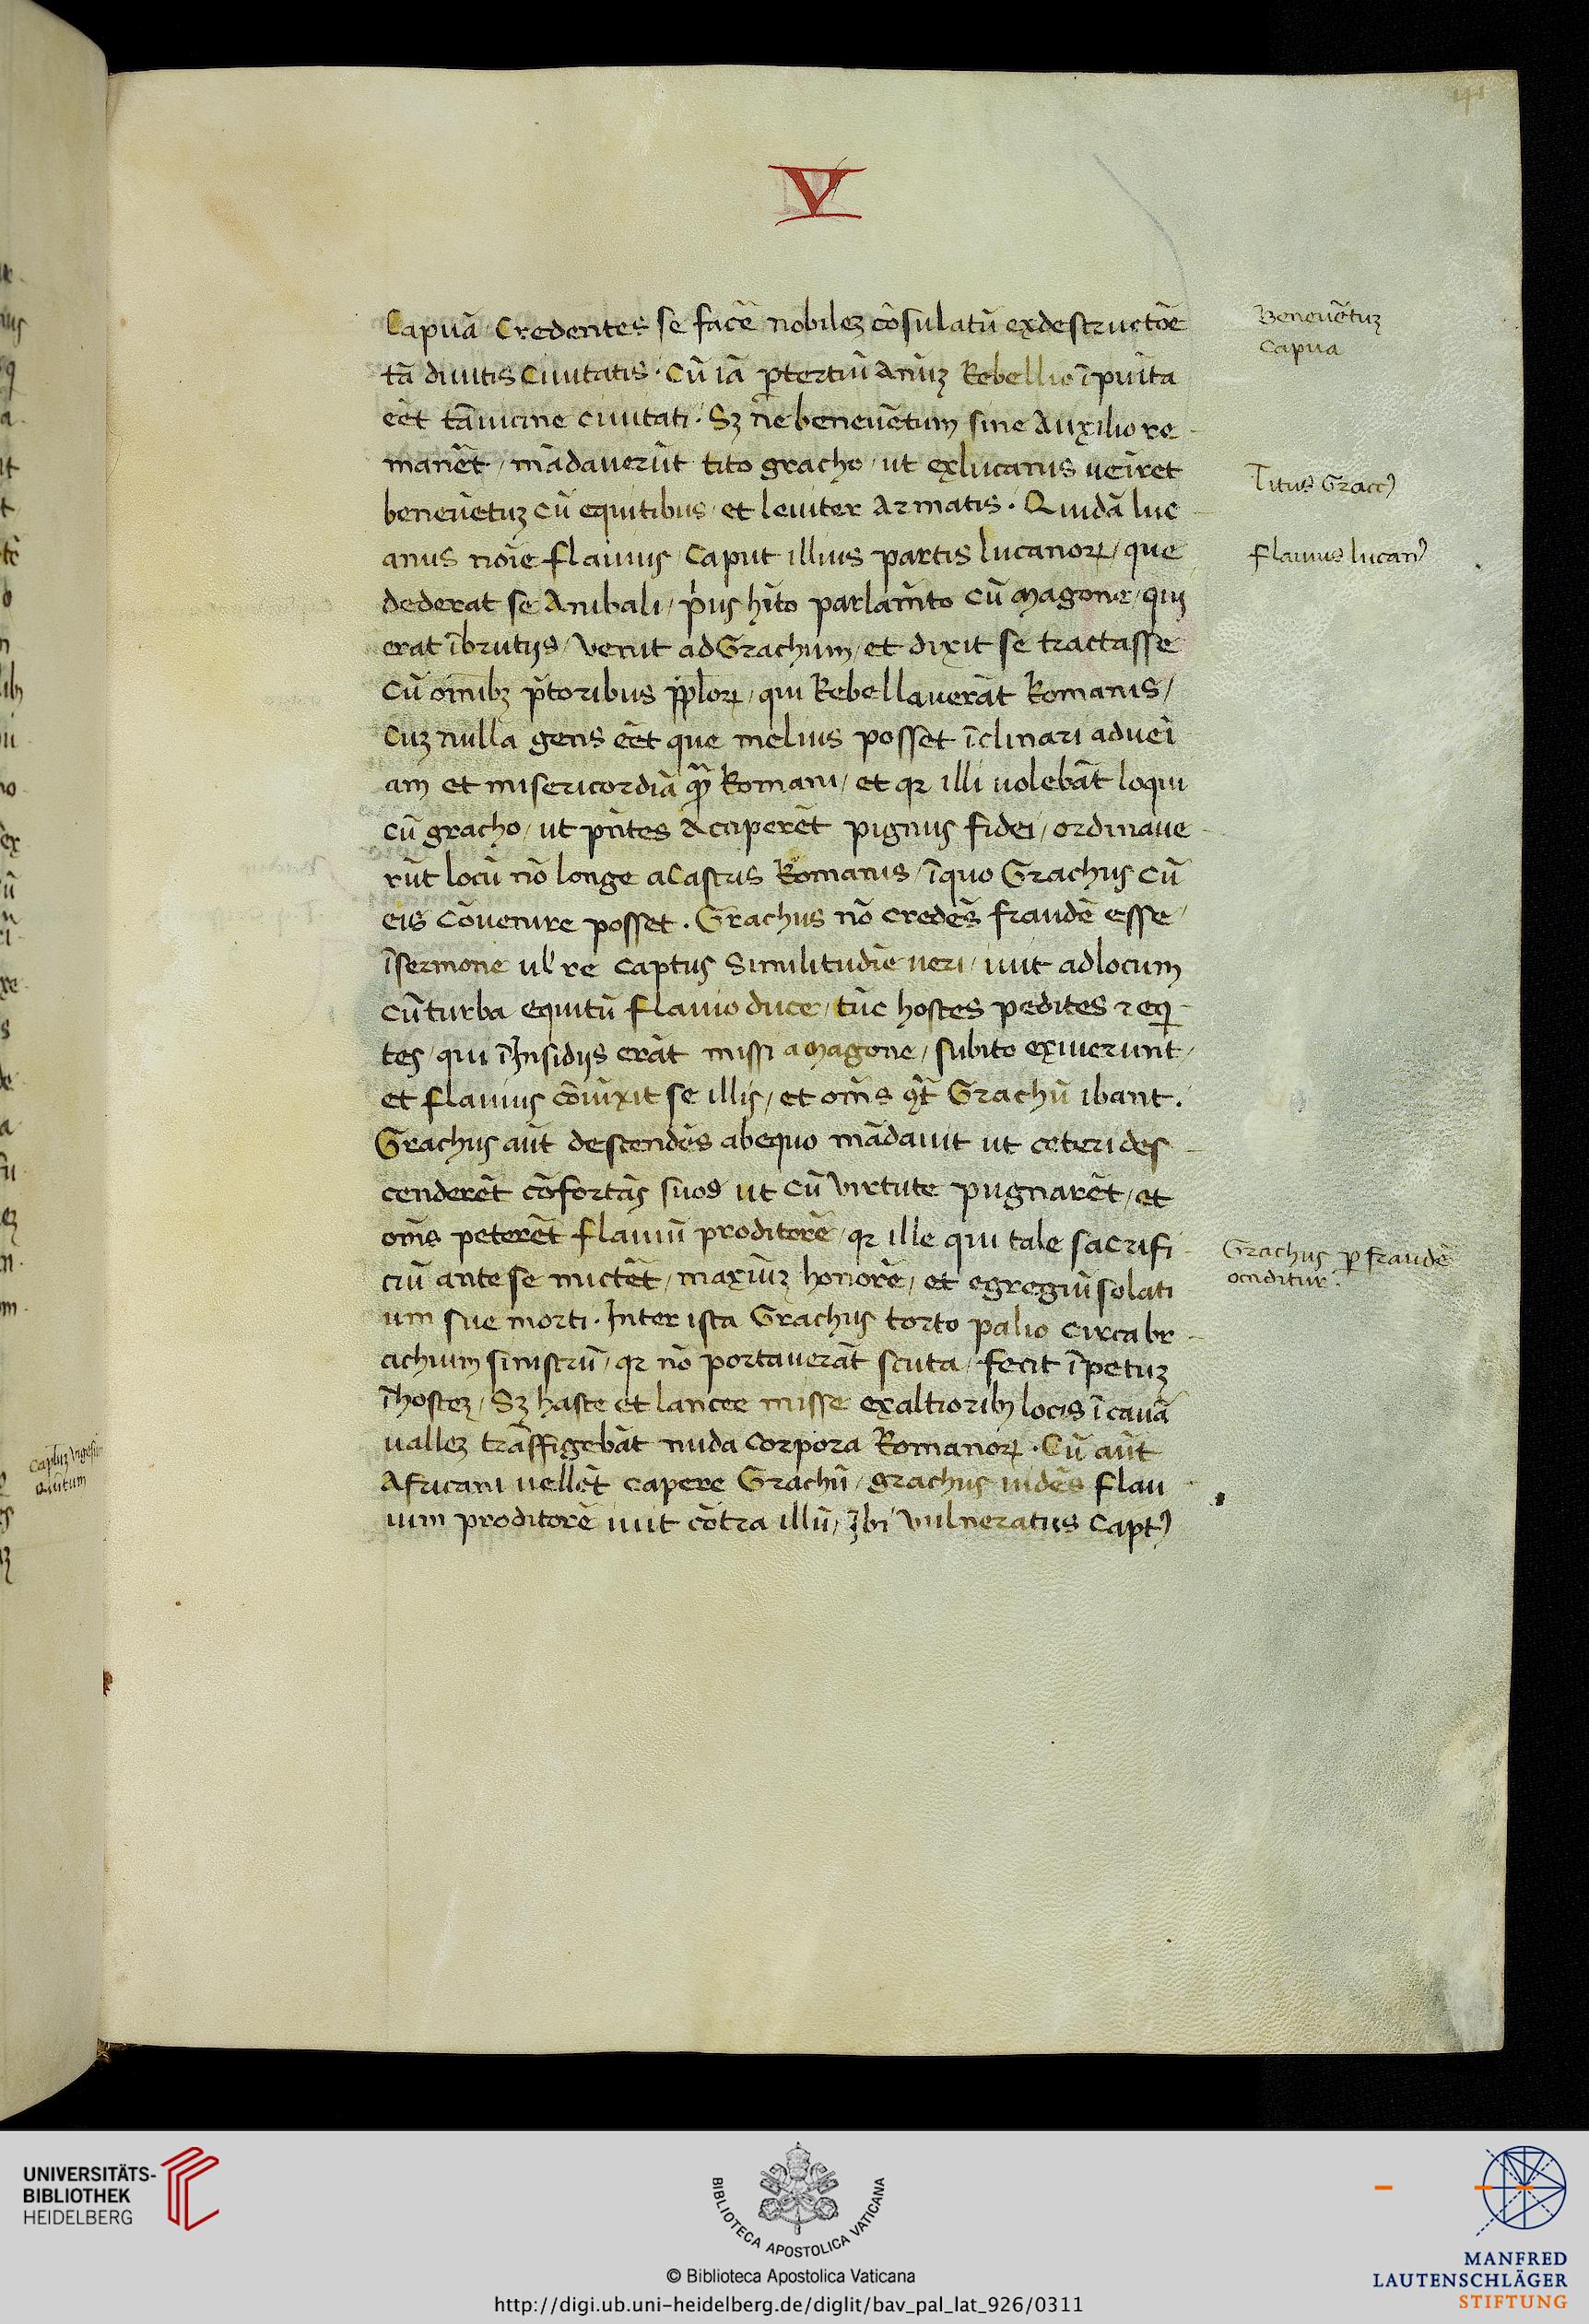 V
Capuā Credentes se facē nobilez cōsulatū exdestructōe
tā diuitis Ciuitatis · Cū iā p tertiū Anūz Rebellio īpuīta
eēt tāuicine ciuitati · Sz ne beneuētum sine Auxilio re
manēt / mādauerūt tito gracho / ut exlucanis ueīret
beneuētuz cū equitibus et leuiter Armatis · Quidā luc
anus noīe flauius / Caput illius partis lucanoꝝ / que
dederat se Anibali / p'us hīto parlamīto cū Magone / qui
erat ībrutijs / venit adGrachum / et dixit se tractasse
Cū omībz p̄toribus pp̄loꝝ / qui Rebellauerāt Romanis /
Cuz nulla gens eēt que melius posset īclinari adueī
am et misericordiā q̄ꝫ Romani / et qꝛ illi uolebāt loqui
cū gracho / ut pn̄tes Acciperēt pignus fidei / ordinaue
rūt locū nō longe aCastris Romanis / īquo Grachus cū
eis cōuenire posset . Grachus nō credēs fraudē esse
īsermone ul' re captus Similitudīe ueri / iuit adlocum
cūturba equitū flauio duce / tūc hostes pedites ⁊ eqi
tes / qui īInsidijs erāt missi aMagone / subito exiuerunt /
et flauius cōiūxit se illis / et om̄s 9t̄ Grachū ibant .
Grachus aūt descendēs abequo mādauit ut ceteri des
cenderēt cōfortās suos ut cū virtute pugnarēt / et
om̄s peterēt flauiū proditorē / qꝛ ille qui tale sacrifi
ciū ante se mictēt / maxiūz honorē / et egregiū solati
um sue morti · Inter ista Grachus torto palio circa br
achium sinistrū / qꝛ nō portauerāt scuta / fecit īpetuz
īhostez / Sz haste et lancee misse exaltioribꝫ locis ī cauā
uallez trāffigebāt nuda corpora Romanoꝝ · Cū aūt
Africani uellēt capere Grachū / grachus uidēs flau
ium proditorē iuit cōtra illū / Ibi vulneratus capt9
Beneuētuz
Capua
Titus Gracc9
flauius lucan9
Grachus ꝑ fraudē
occiditur .
UNIVERSITÄTS-
BIBLIOTHEK
HEIDELBERG
BIBLIOTECA APOSTOLICA VATICANA
© Biblioteca Apostolica Vaticana
http://digi.ub.uni-heidelberg.de/diglit/bav_pal_lat_926/0311
MANFRED
LAUTENSCHLÄGER
STIFTUNG